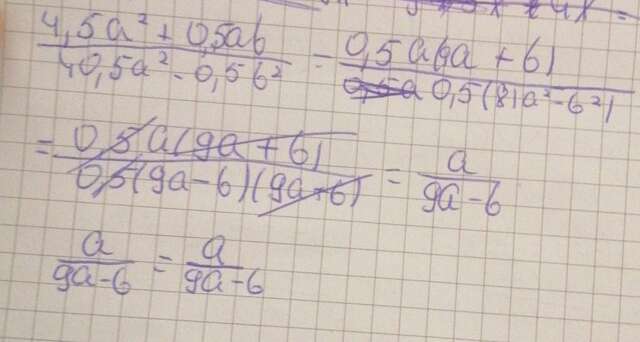 (4,5a² + 0,5ab)/(40,5a² - 0,5b²) = 0,5a(9a + b)/0,5(81a² - b²)
= 0,5a(9a + b)/0,5(9a - b)(9a + b) = a/(9a - b)
a/(9a - b) = a/(9a - b)